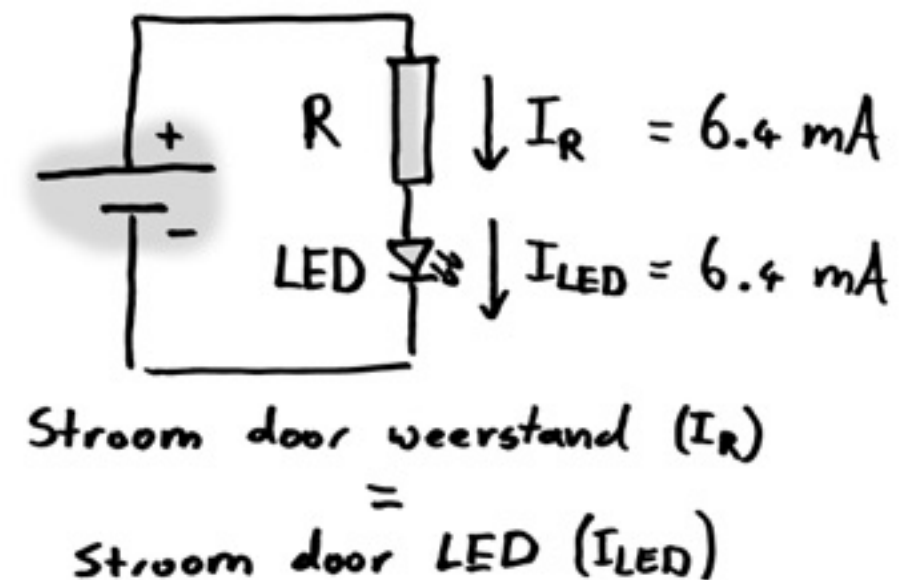 +
R
I_R = 6.4 mA
-
LED
I_LED = 6.4 mA
Stroom door weerstand (I_R)
=
Stroom door LED (I_LED)